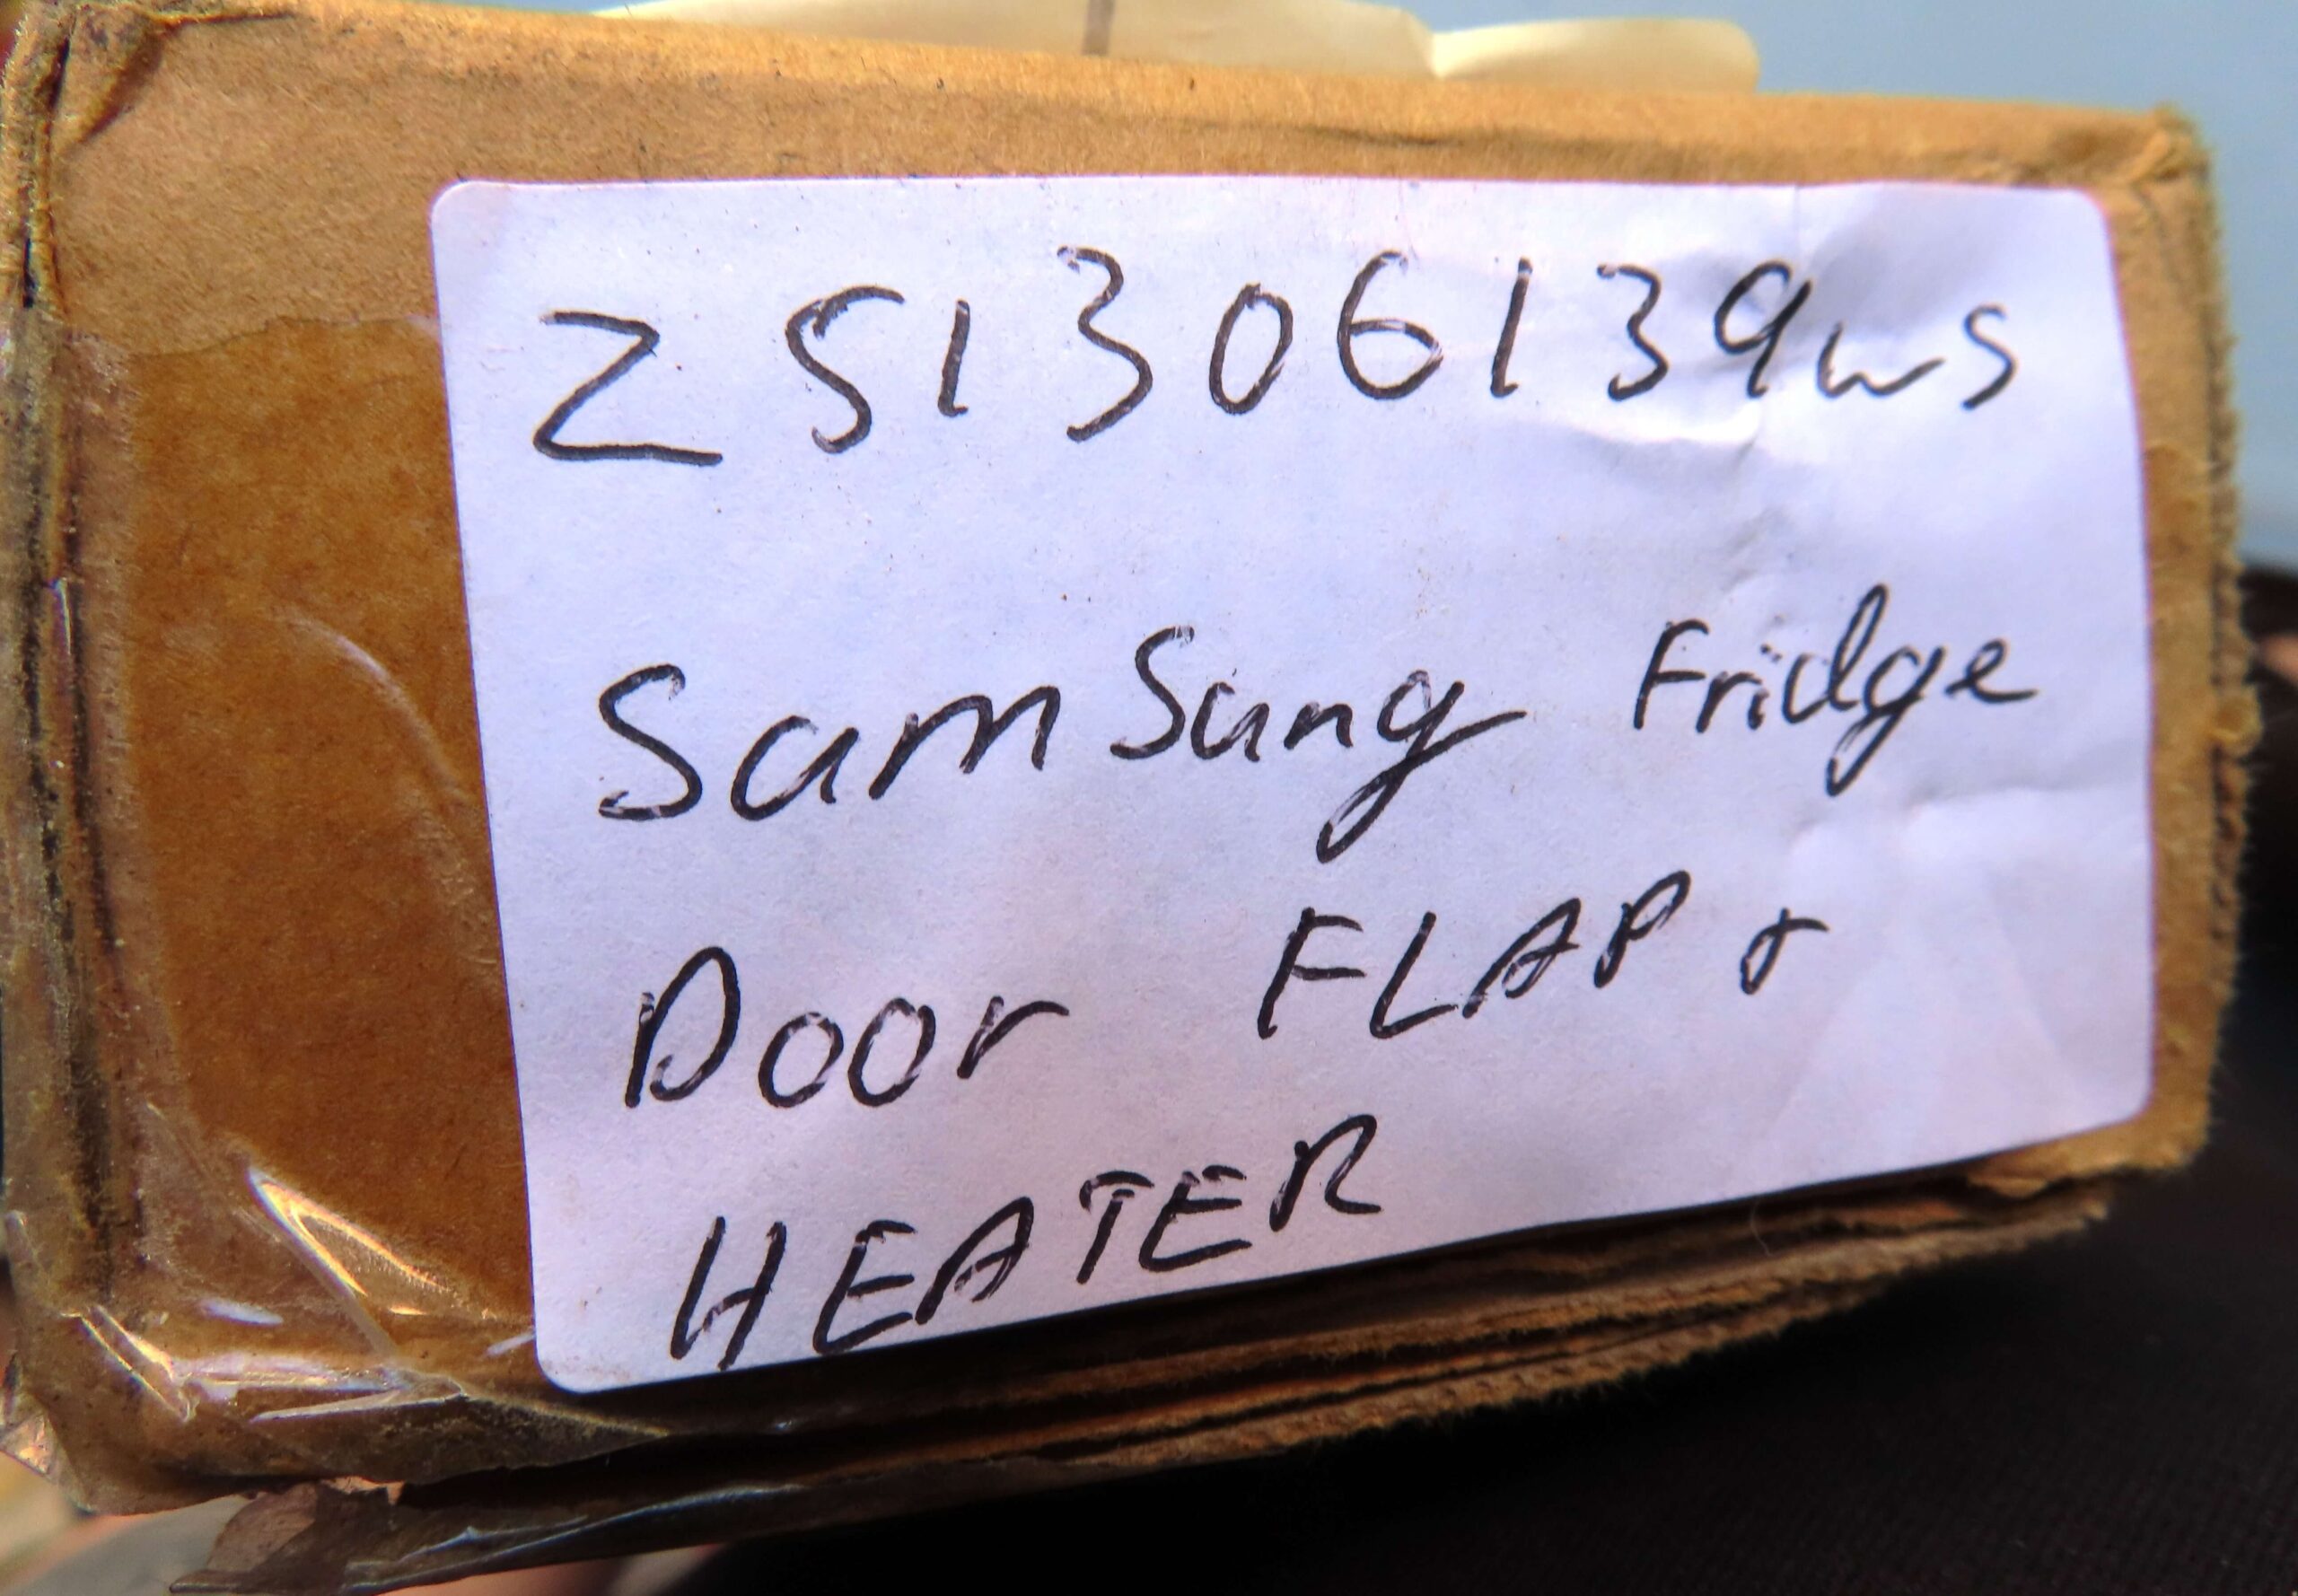 251306139ws
SamSung Fridge
Door FLAP +
HEATER